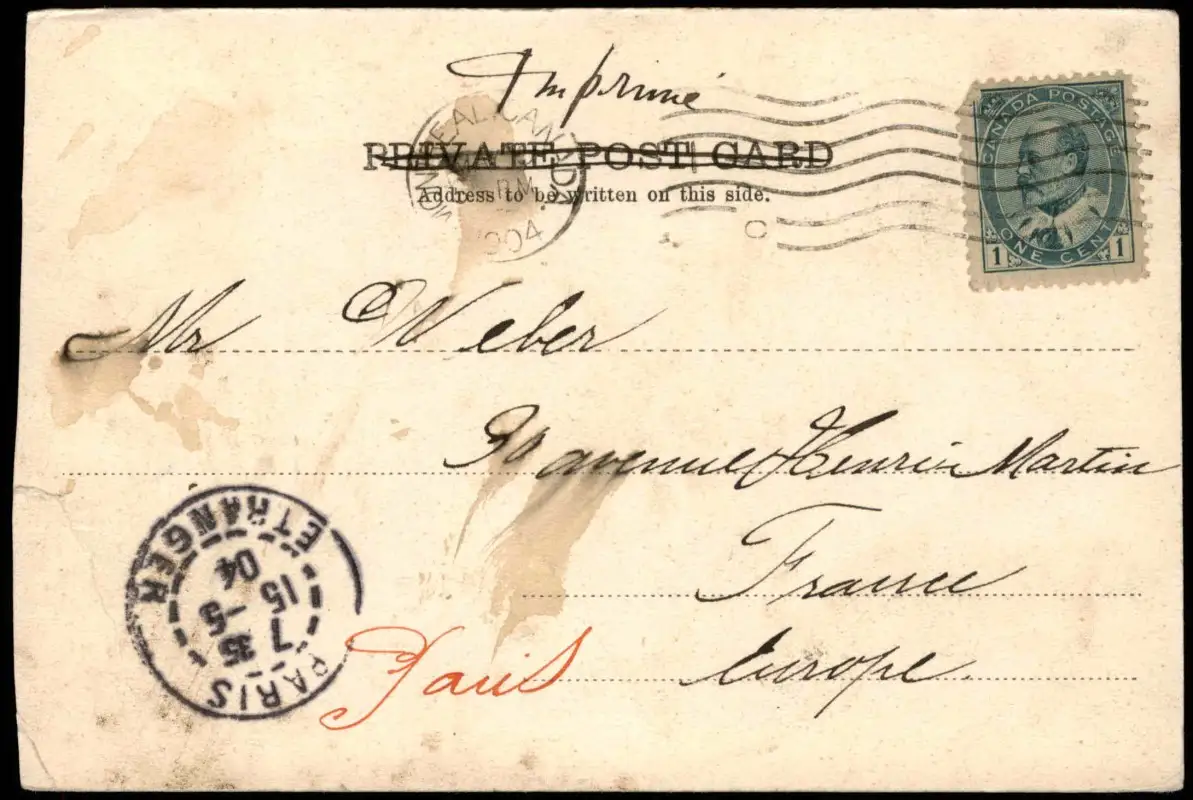 Imprimé
PRIVATE POST CARD
Address to be written on this side.
MONTREAL, CANADA
PM
1904
CANADA POSTAGE
1 ONE CENT 1
Mr Weber
avenue Henri Martin
France
Paris Europe.
PARIS ETRANGER
7 35
15 -5
04